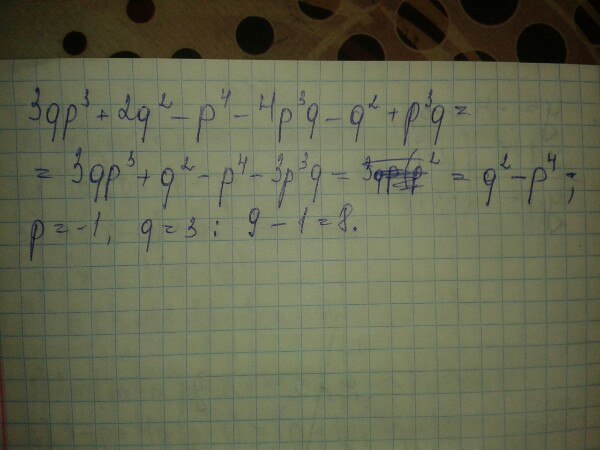 3qp³ + 2q² - p⁴ - 4p³q - q² + p³q =
= 3qp³ + q² - p⁴ - 3p³q = = q² - p⁴;
p = -1, q = 3 : 9 - 1 = 8.